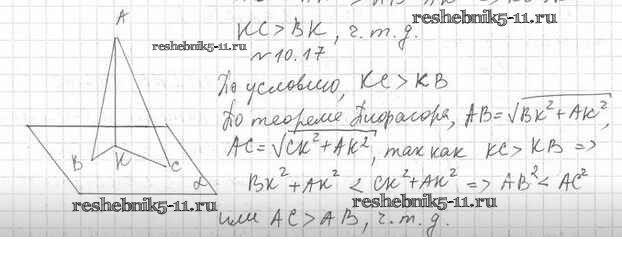 KC > BK, ч.т.д.
reshebnik5-11.ru
reshebnik5-11.ru
№10.17
По условию, KC > KB
По теореме Пифагора, AB = √BK² + AK²,
AC = √CK² + AK², так как KC > KB =>
BK² + AK² < CK² + AK² => AB² < AC²
или AC > AB, ч.т.д.
A
B
K
C
α
reshebnik5-11.ru
reshebnik5-11.ru